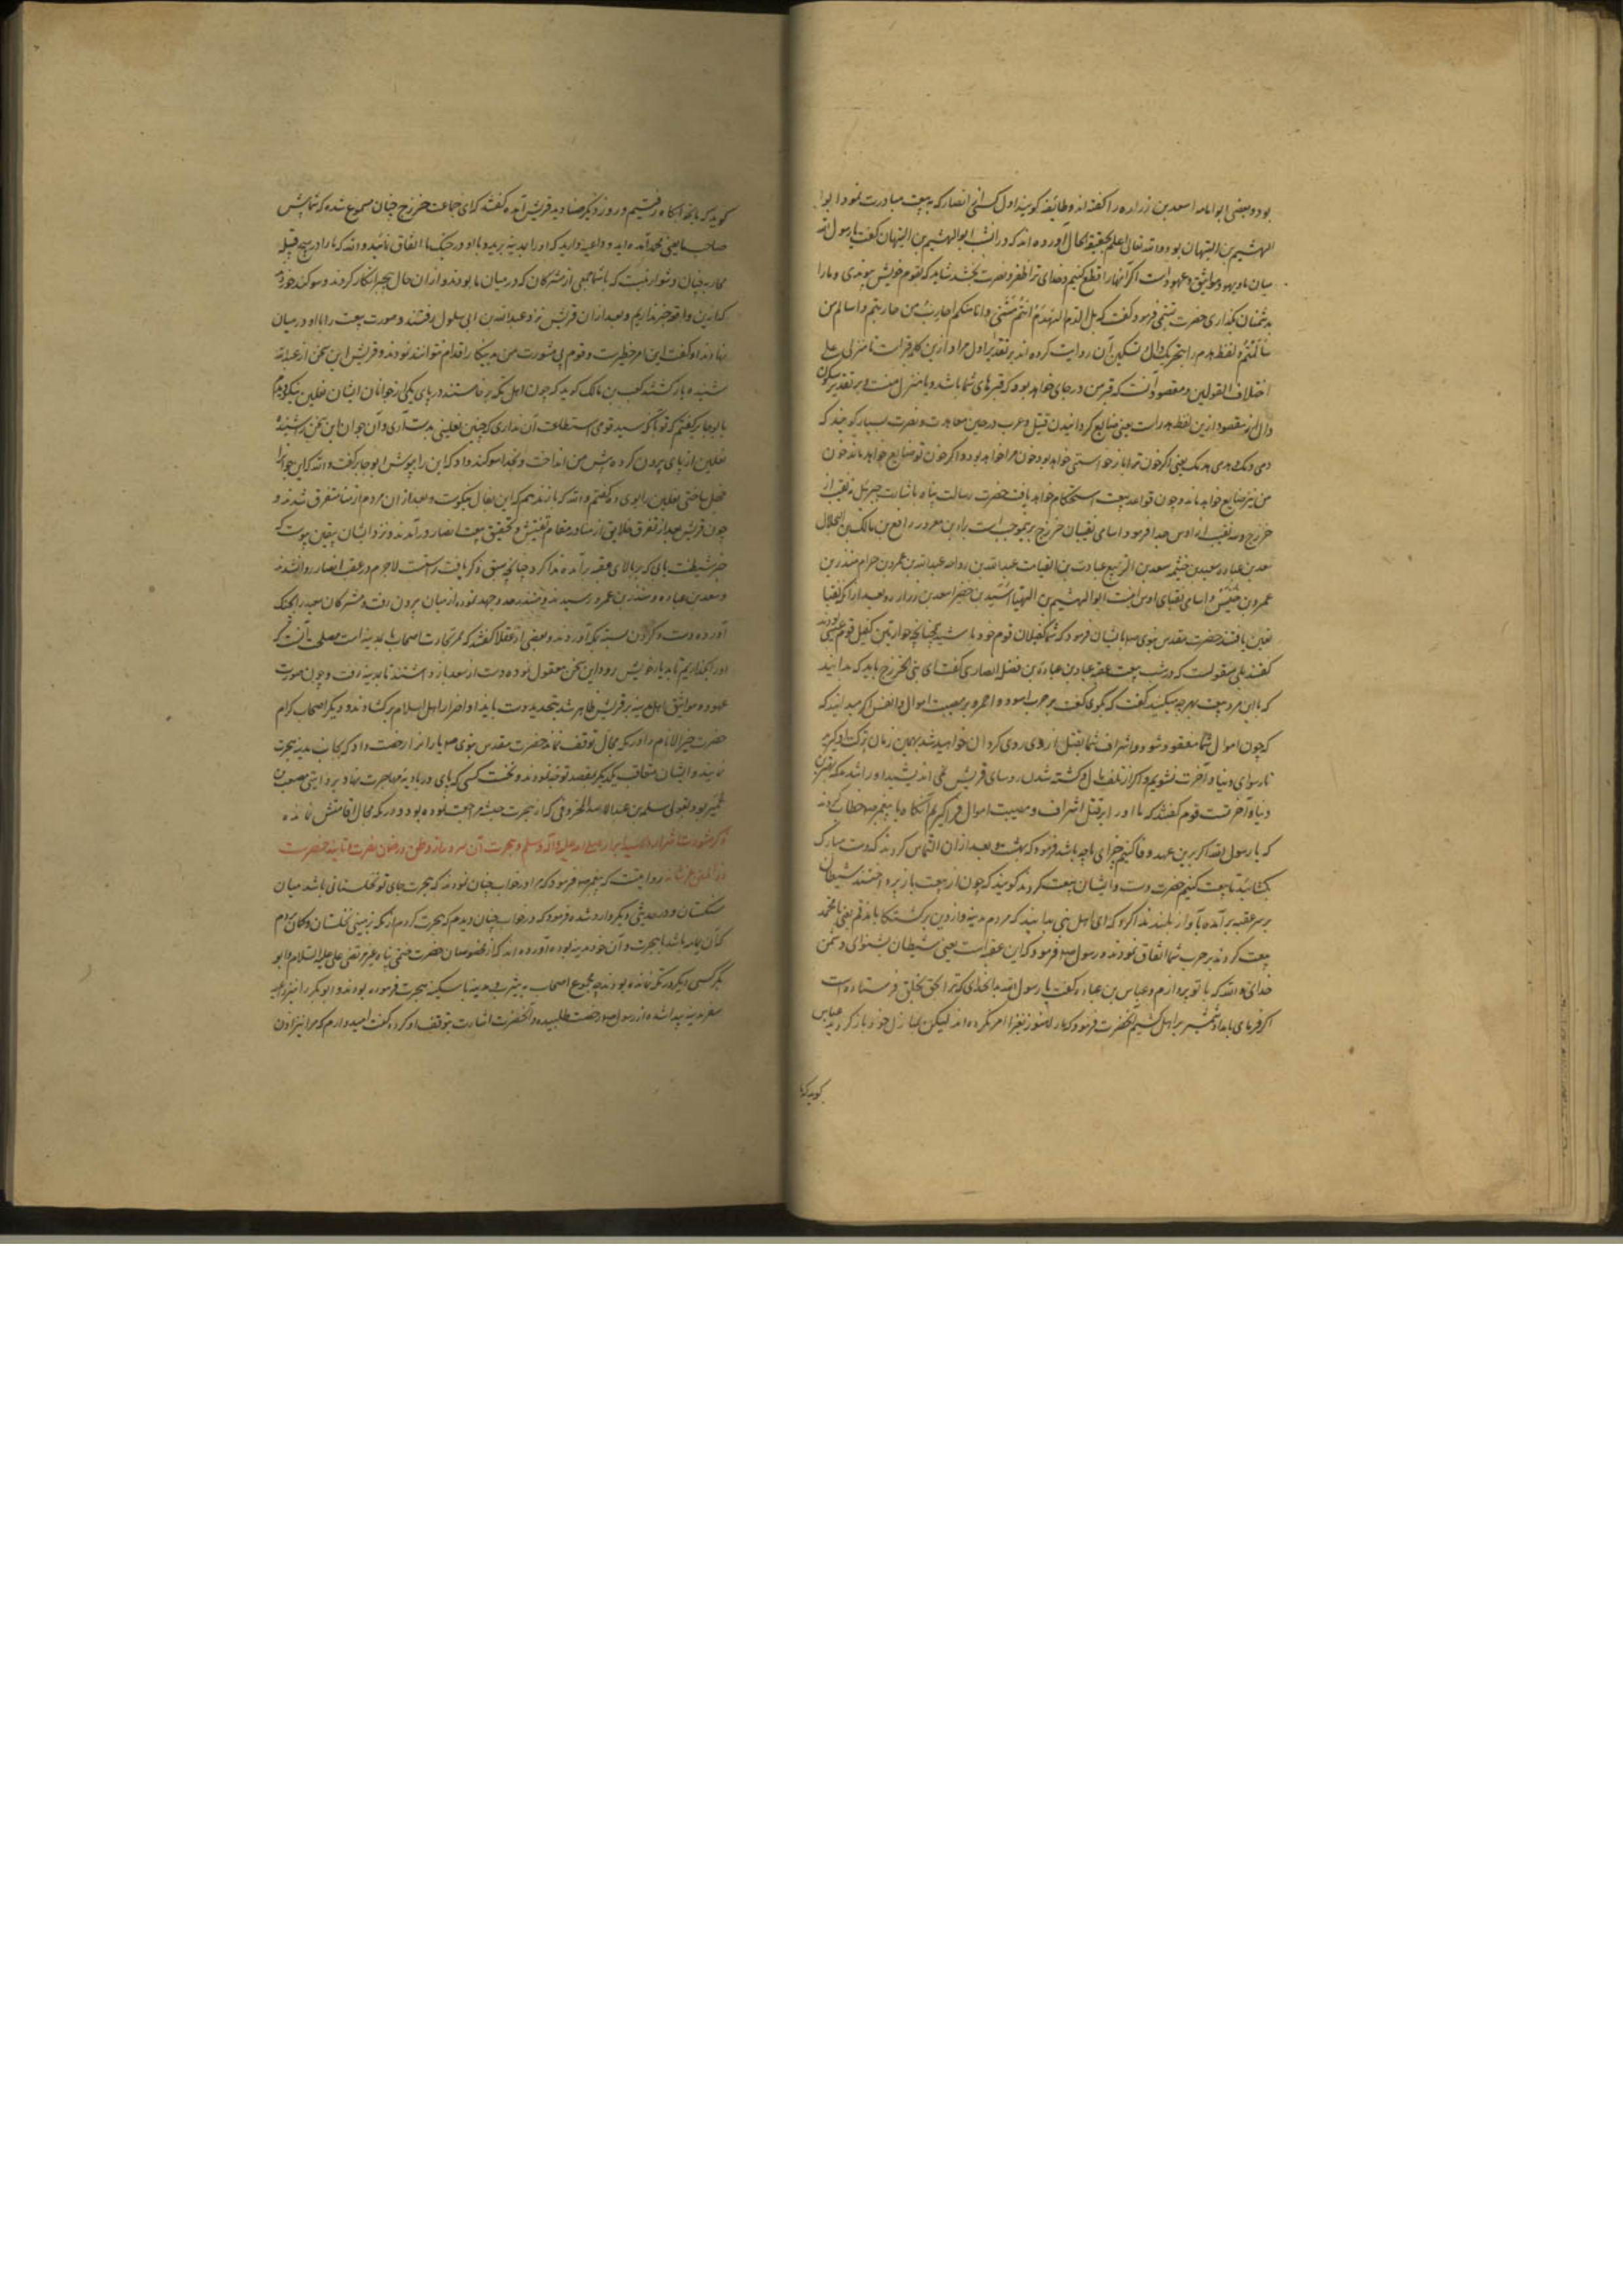 بود و بعضی ابو امامه اسعد بن زراره را گفته‌اند و طائفه گویند اول کسی از انصار که به بیعت مبادرت نمود ابو
الهیثم بن التیهان بود والله تعالی اعلم بحقیقة الحال آورده‌اند که در آن شب ابو الهیثم بن التیهان گفت یا رسول الله
میان ما و یهود مواثیق و عهود است اگر آنها را قطع کنیم و خدای ترا ظفر و نصرت بخشد شاید که بقوم خویش پیوندی و ما را
بدشمنان بگذاری حضرت تبسمی فرمود و گفت که بل الدم الدم الهدم الهدم انتم منی و انا منکم احارب من حاربتم و اسالم من
سالمتم و لفظ هدم را بتحریک دال و تسکین آن روایت کرده‌اند بر تقدیر اول مراد ازین کلمه قبر است یا منزل علی
اختلاف القولین و مقصود آنست که قبر من در جای خواهد بود که قبرهای شما باشد و یا منزل منست و بر تقدیر سکون
دال مقصود ازین لفظ هدر است یعنی ضایع گردانیدن قتیل و عرب در حین معاهدت و نصرت بسیار گویند که
دمی دمک و هدمی هدمک یعنی اگر خون ترا باز خواستی خواهد بود خون مرا خواهد بود و اگر خون تو ضایع خواهد ماند خون
من نیز ضایع خواهد ماند و چون قواعد بیعت استحکام خواهد یافت حضرت رسالت پناه باشارت جبرئیل نه نقیب از
خزرج و سه نقیب از اوس جدا فرمود و اسامی نقیبان خزرج برینموجب است براء بن معرور رافع بن مالک بن العجلان
سعد بن عباده سعد بن خیثمه سعد بن الربیع عبادة بن الصامت عبدالله بن رواحه عبدالله بن عمرو بن حرام منذر بن
عمرو بن خنیس و اسامی نقبای اوس اینست ابو الهیثم بن التیهان اسید بن حضیر اسعد بن زراره و بعد از آنکه نقبا
تعین یافتند حضرت مقدس نبوی صلعم بایشان فرمود که شما کفیلان قوم خود باشید چنانچه حواریین کفیل قوم عیسی بودند
گفتند بلی منقولست که در شب بیعت عقبه عباس بن عباده بن فضل انصاری گفت ای بنی الخزرج باید که بدانید
که با این مرد بیعت بهر چه میکنید گفتند که بگوی گفت بر حرب اسود و احمر و بر مصیبت اموال و انفس اگر میدانید که
که چون اموال شما مفقود شود و اشراف شما بقتل آیند از وی روی گردان خواهید شد بهمین زمان ترک او گیرید
تا رسوای دنیا و آخرت نشوید و اگر از تلف مال و کشته شدن روسای قریش نمی اندیشید او را
دنیا و آخرتست قوم گفتند که ما او را بر قتل اشراف و مصیبت اموال فرا گیریم آنگاه با پیغمبر صلعم خطاب کردند
که یا رسول الله اگر برین عهد وفا کنیم جزای ما چه باشد فرمود که بهشت بعد از آن التماس کردند که دست مبارک
بگشائید تا بیعت کنیم حضرت دست داد ایشان بیعت کردند گویند که چون از بیعت باز پرداختند شیطان
بر سر عقبه برآمده بآواز بلند ندا کرد که ای اهل منی بدانید که مردم مدینه و از دین برگشتگان با مذمم یعنی با محمد
بیعت کردند بر حرب شما اتفاق نمودند رسول صلعم فرمود که این عقبه است یعنی شیطان بشنو ای دشمن
خدای والله که با تو پردازم و عباس بن عباده گفت یا رسول الله بدان خدای که ترا بحق بخلق فرستاده است
اگر فرمای بامداد شمشیر بر اهل کشیم آنحضرت فرمود که مارا هنوز بغزا امر نکرده‌اند لیکن بمنازل خود باز گردید عباس
گوید که ما
گوید که ما بخوابگاه رفتیم و روز دیگر صنادید قریش آمده گفتند که ای جماعت خزرج چنان مسموع شده که شما پیش
صاحب ما یعنی محمد آمده‌اید و داعیه دارید که او را بمدینه برید و با او در جنگ ما اتفاق نمائید والله که ما را در هیچ قبیله
محاربه چنان دشوار نیست که با شما جمعی از مشرکان که در میان ما بودند و از آن حال بیخبر انکار کردند و سوگند خوردند
که ازین واقعه خبر نداریم و بعد از آن قریش نزد عبدالله بن ابی سلول رفتند و صورت بیعت را با او در میان
نهادند او گفت این امر خطیر است و قوم بی مشورت من بدینکار اقدام نتوانند نمود و قریش این سخن از عبدالله
شنیده بازگشتند کعب بن مالک گوید که چون اهل مکه برخاستند در پای یکی از جوانان ایشان نعلین نیکو دیدم
با ابو جابر گفتم که تو با آنکه سید قومی استطاعت آن نداری که چنین نعلینی بدست آری و آن جوان این سخن را شنیده
نعلین از پای بیرون کرده پیش من انداخت و بخدا سوگند داد که این را بپوش ابو جابر گفت والله که این جوان را
خجل ساختی نعلین را بوی ده گفتم والله که باز ندهم که این بفال نیکوست و بعد از آن مردم از منا متفرق شدند و
چون قریش بعد از تفرق خلایق از منا در مقام تفتیش و تحقیق بیعت انصار درآمدند و نزد ایشان بیقین پیوست که
خبر شیطنت بای که بر بالای عقبه برآمده ندا کرد چنانچه سبق ذکر یافت راستست لاجرم در عقب انصار روان شدند
و سعد بن عباده و منذر بن عمرو رسیدند و منذر جد و جهد نموده از میان بیرون رفت و مشرکان سعد را بچنگ
آورده دست و گردن بسته بمکه آوردند و بعضی از عقلا گفتند که ممر تجارت اصحاب ما بمدینه است مصلحت آنست که
او را بگذاریم تا بدیار خویش رود این سخن معقول نموده دست از سعد باز داشتند تا بمدینه رفت و چون صورت
عهود و مواثیق اهل مدینه بر قریش ظاهر شد بتجدید دست بایذا و اضرار اهل اسلام برگشادند و دیگر اصحاب کرام
حضرت خیر الانام را در مکه مجال توقف نماند حضرت مقدس نبوی صلعم یارانرا رخصت داد که بجانب مدینه هجرت
نمایند و ایشان متعاقب یکدیگر بقصد توجه نمودند و نخست کسی که پای در بادیه مهاجرت نهاد بروایتی مصعب بن
عمیر بود و بقولی سلمه بن عبدالاسد المخزومی که از هجرت حبشه مراجعت نموده بود و در مکه مجال اقامتش نمانده
ذکر مشورت اشرار در سید ابرار صلی الله علیه وآله وسلم و هجرت آن سرور از وطن در ضمان نصرت و تایید حضرت
روایتست که پیغمبر صلعم فرمود که مرا در خواب چنان نمودند که هجرت جای تو نخلستانی باشد میان
سنگستان و در حدیثی دیگر وارد شده فرمود که در خواب چنان دیدم که هجرت کردم از مکه بزمینی نخلستان و گمان بردم
که آن یمامه باشد یا هجرت و آن خود مدینه بوده آورده‌اند که از مخصوصان حضرت ختمی پناه غیر مرتضی علی علیه السلام و ابو
بکر کسی دیگر در مکه نمانده بودند چه مجموع اصحاب به یثرب و مدینه با سکینه هجرت فرموده بودند و ابو بکر را نیز داعیه
سفر مدینه پیدا شده از رسول صلعم رخصت طلبیده و آنحضرت اشارت بتوقف او کرده گفت امیدوارم که مرا نیز اذن